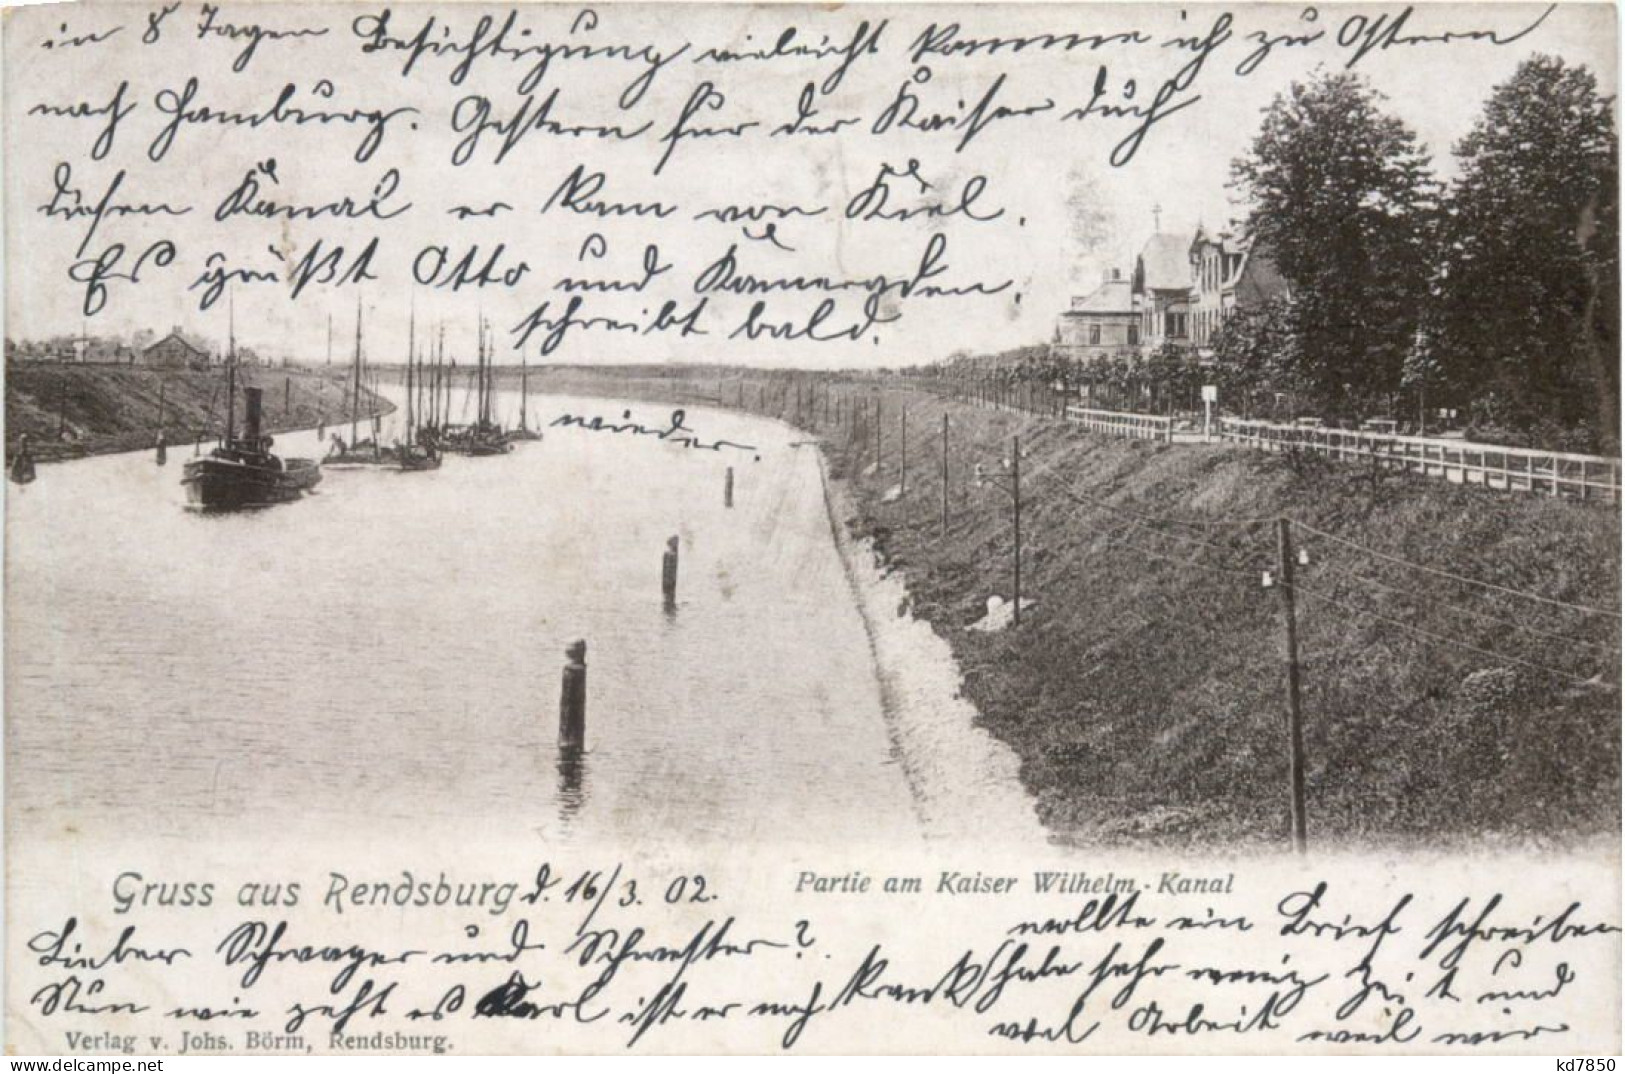 in 8 Tagen Besichtigung vieleicht komme ich zu Ostern
nach Hamburg. Gestern fur der Kaiser duch
diesen Kanal er kam von Kiel.
Es grüßt Otto und Kameraden.
schreibt bald.
wieder.
Gruss aus Rendsburg d. 16/3. 02.
Partie am Kaiser Wilhelm-Kanal
Lieber Schwager und Schwester?
Nun wie geht es Karl ist er noch krank
wollte ein Brief schreiben
habe sehr wenig Zeit und
viel Arbeit weil wir
Verlag v. Johs. Börm, Rendsburg.
kd7850